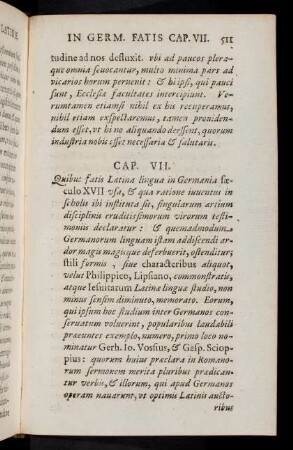 IN GERM. FATIS CAP. VII. 511
tudine ad nos defluxit. vbi ad paucos plera-
que omnia seuocantur, multo minima pars ad
vicarios horum peruenit: & hi ipsi, qui pauci
sunt, Ecclesiæ facultates intercipiunt. Ve-
rumtamen etiamsi nihil ex his recuperamus,
nihil etiam exspectaremus, tamen prouiden-
dum esset, vt hi ne aliquando deessent, quorum
industria nobis esset necessaria & salutaris.
CAP. VII.
Quibus fatis Latina lingua in Germania sæ-
culo XVII vsa, & qua ratione iuuentus in
scholis ibi instituta sit, singularum artium
disciplinis eruditissimorum virorum testi-
moniis declaratur: & quemadmodum
Germanorum linguam istam addiscendi ar-
dor magis magisque deferbuerit, ostenditur;
stili formis, siue characteribus aliquot,
velut Philippico, Lipsiano, commonstratis,
atque Iesuitarum Latinæ linguæ studio, non
minus sensim diminuto, memorato. Eorum,
qui ipsum hoc studium inter Germanos con-
seruatum voluerint, popularibus laudabili
præeuntes exemplo, numero, primo loco no-
minatur Gerh. Io. Vossius, & Gasp. Sciop-
pius: quorum huius præclara in Romano-
rum sermonem merita pluribus prædican-
tur verbis, & illorum, qui apud Germanos
operam nauarunt, vt optimis Latinis aucto-
ribus